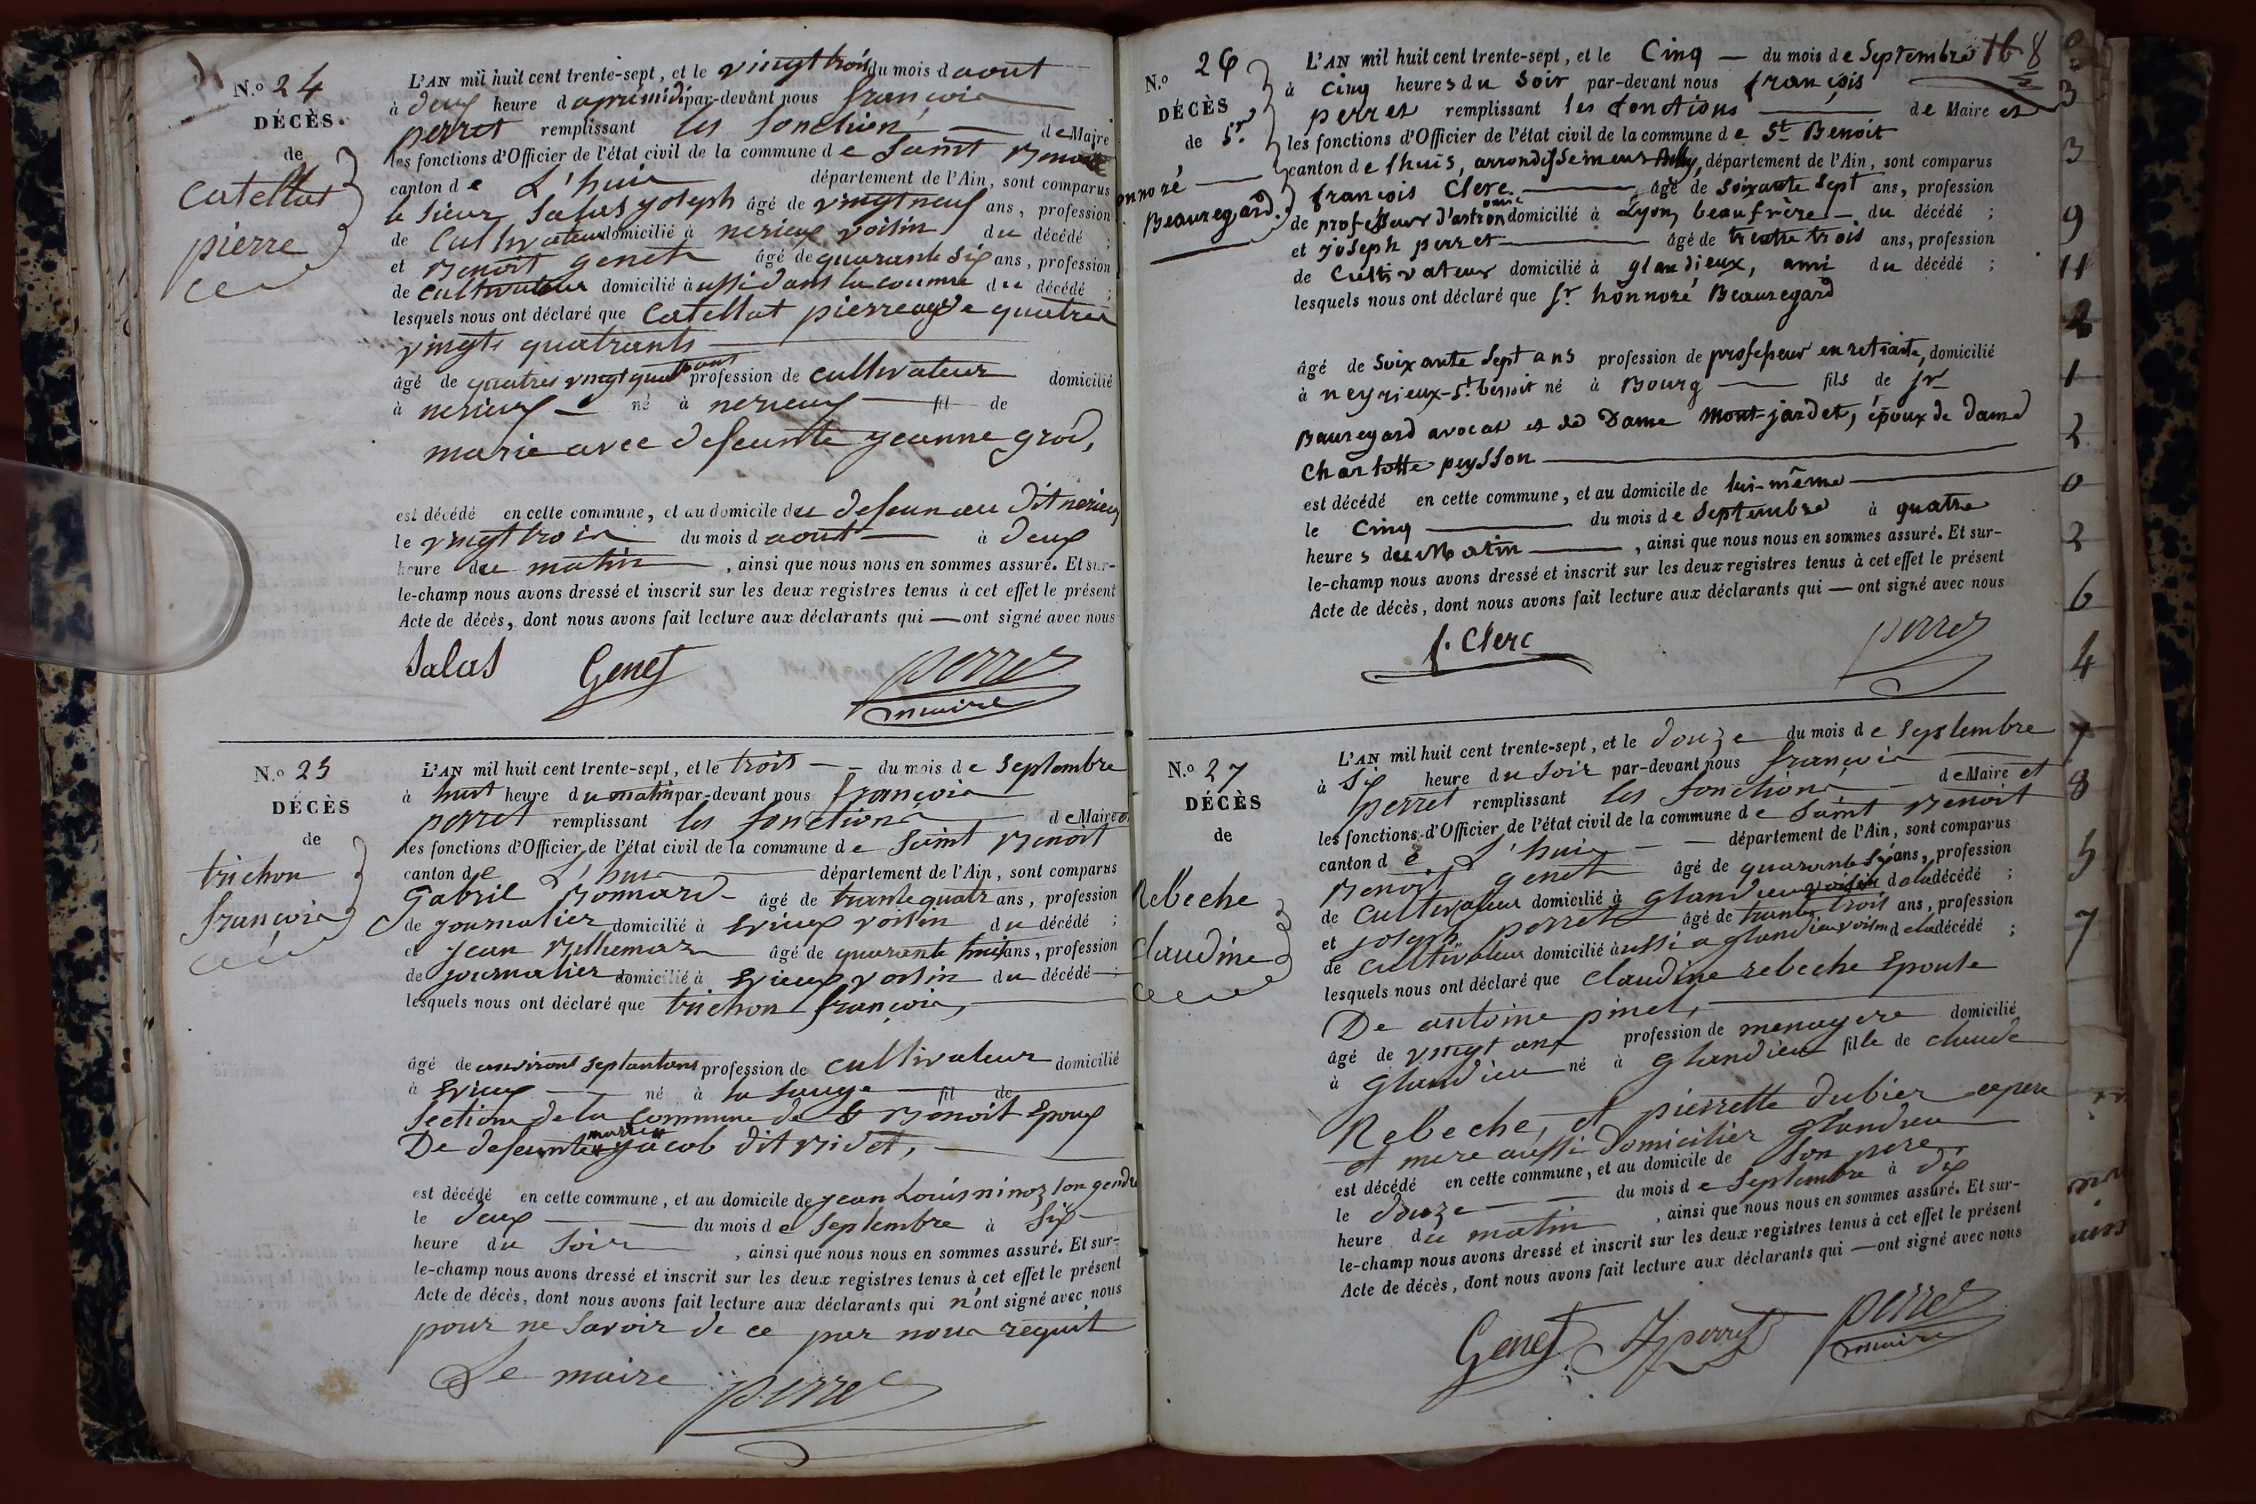 N.o 24
DÉCÈS.
de
Catellat
pierre
L'AN mil huit cent trente-sept, et le vingt trois du mois d aout
à deux heure d aprémidi par-devant nous françois
perret remplissant les fonction de Maire
les fonctions d'Officier de l'état civil de la commune d e Saint Benoit
canton d e L'huis département de l'Ain, sont comparus
le Sieur Salas joseph âgé de vingt neuf ans, profession
de Cultivateur domicilié à nerieux voisin du décédé ;
et Benoit genet âgé de quarante Six ans, profession
de cultivateur domicilié à ussi dans la coumne du décédé ;
lesquels nous ont déclaré que Catellat pierre agé de quatre
vingts quatrants
âgé de quatres vingt quatr ants profession de cultivateur domicilié
à nerieux né à nerieux fil de
marie avec defeunte jeanne grod,
est décédé en cette commune, et au domicile du defeun au dit nerieux
le vingt trois du mois d aout à deux
heure du matin , ainsi que nous nous en sommes assuré. Et sur-
le-champ nous avons dressé et inscrit sur les deux registres tenus à cet effet le présent
Acte de décès, dont nous avons fait lecture aux déclarants qui — ont signé avec nous
Salas Genet perret
maire
N.o 25
DÉCÈS
de
trichon
françois
L'AN mil huit cent trente-sept, et le trois — du mois d e Septembre
à huit heure du matin par-devant nous françois
perret remplissant les fonctions d e Maire et
les fonctions d'Officier de l'état civil de la commune d e Saint Benoit
canton d e L'huis département de l'Ain, sont comparus
Gabril Bonnard âgé de trante quatr ans, profession
de journalier domicilié à Evieux voisin du décédé ;
et jean âgé de quarante huit ans, profession
de journalier domicilié à Evieux voisin du décédé ;
lesquels nous ont déclaré que trichon françois,
âgé de environs septantans profession de cultivateur domicilié
à Evieux né à la Sauge fil de
Section de la Commune de St Benoit Epoux
De defeunte marie jacob dit Bidet,
est décédé en cette commune, et au domicile de jean Louis ninoz son gendre
le deux du mois d e Septembre à Six
heure du Soir , ainsi que nous nous en sommes assuré. Et sur-
le-champ nous avons dressé et inscrit sur les deux registres tenus à cet effet le présent
Acte de décès, dont nous avons fait lecture aux déclarants qui n'ont signé avec nous
pour ne Savoir de ce par nous requit
Le maire perret
N.o 26
DÉCÈS
de Sr
onnoré
Beauregard.
168
L'AN mil huit cent trente-sept, et le Cinq — du mois d e Septembre
à Cinq heures du Soir par-devant nous françois
perret remplissant les fonctions de Maire et
les fonctions d'Officier de l'état civil de la commune d e St Benoit
canton de lhuis, arrondissement , département de l'Ain, sont comparus
françois Clerc âgé de Soixante Sept ans, profession
de professeur d'astronomie domicilié à Lyon, beaufrère — du décédé ;
et joseph perret âgé de trente trois ans, profession
de Cultivateur domicilié à glandieux, ami du décédé ;
lesquels nous ont déclaré que Sr honnoré Beauregard
âgé de Soixante Sept ans profession de professeur en retraite, domicilié
à neyrieux-St benoit né à Bourg fils de Sr
Bauregard avocat et de Dame Mont-jardet, époux de dame
Charlotte peysson
est décédé en cette commune, et au domicile de lui-même
le Cinq du mois d e Septembre à quatre
heures du Matin , ainsi que nous nous en sommes assuré. Et sur-
le-champ nous avons dressé et inscrit sur les deux registres tenus à cet effet le présent
Acte de décès, dont nous avons fait lecture aux déclarants qui — ont signé avec nous
f. Clerc perret
N.o 27
DÉCÈS
de
Rebeche
claudine
L'AN mil huit cent trente-sept, et le douze du mois d e Septembre
à Six heure du Soir par-devant nous françois
perret remplissant les fonctions d e Maire et
les fonctions d'Officier de l'état civil de la commune d e Saint Benoit
canton d e L'huis — département de l'Ain, sont comparus
Benoit genet âgé de quarante Six ans, profession
de Cultivateur domicilié à glandieux voisin d ela décédé ;
et joseph perret âgé de trante trois ans, profession
de cultivateur domicilié à ussi a glandieu voisin d ela décédé ;
lesquels nous ont déclaré que claudine rebeche Epouse
De antoine pinet,
âgé de vingt ans profession de menagere domicilié
à glandieu né à glandieu fille de claude
Rebeche, et pierrette dubier cepere
et mere aussi Domicilier glandieu
est décédé en cette commune, et au domicile de Son pere
le douze du mois d e Septembre à dix
heure du matin , ainsi que nous nous en sommes assuré. Et sur-
le-champ nous avons dressé et inscrit sur les deux registres tenus à cet effet le présent
Acte de décès, dont nous avons fait lecture aux déclarants qui — ont signé avec nous
Genet perret perret
maire
3
3
9
11
2
1
2
0
2
6
4
7
8
5
7